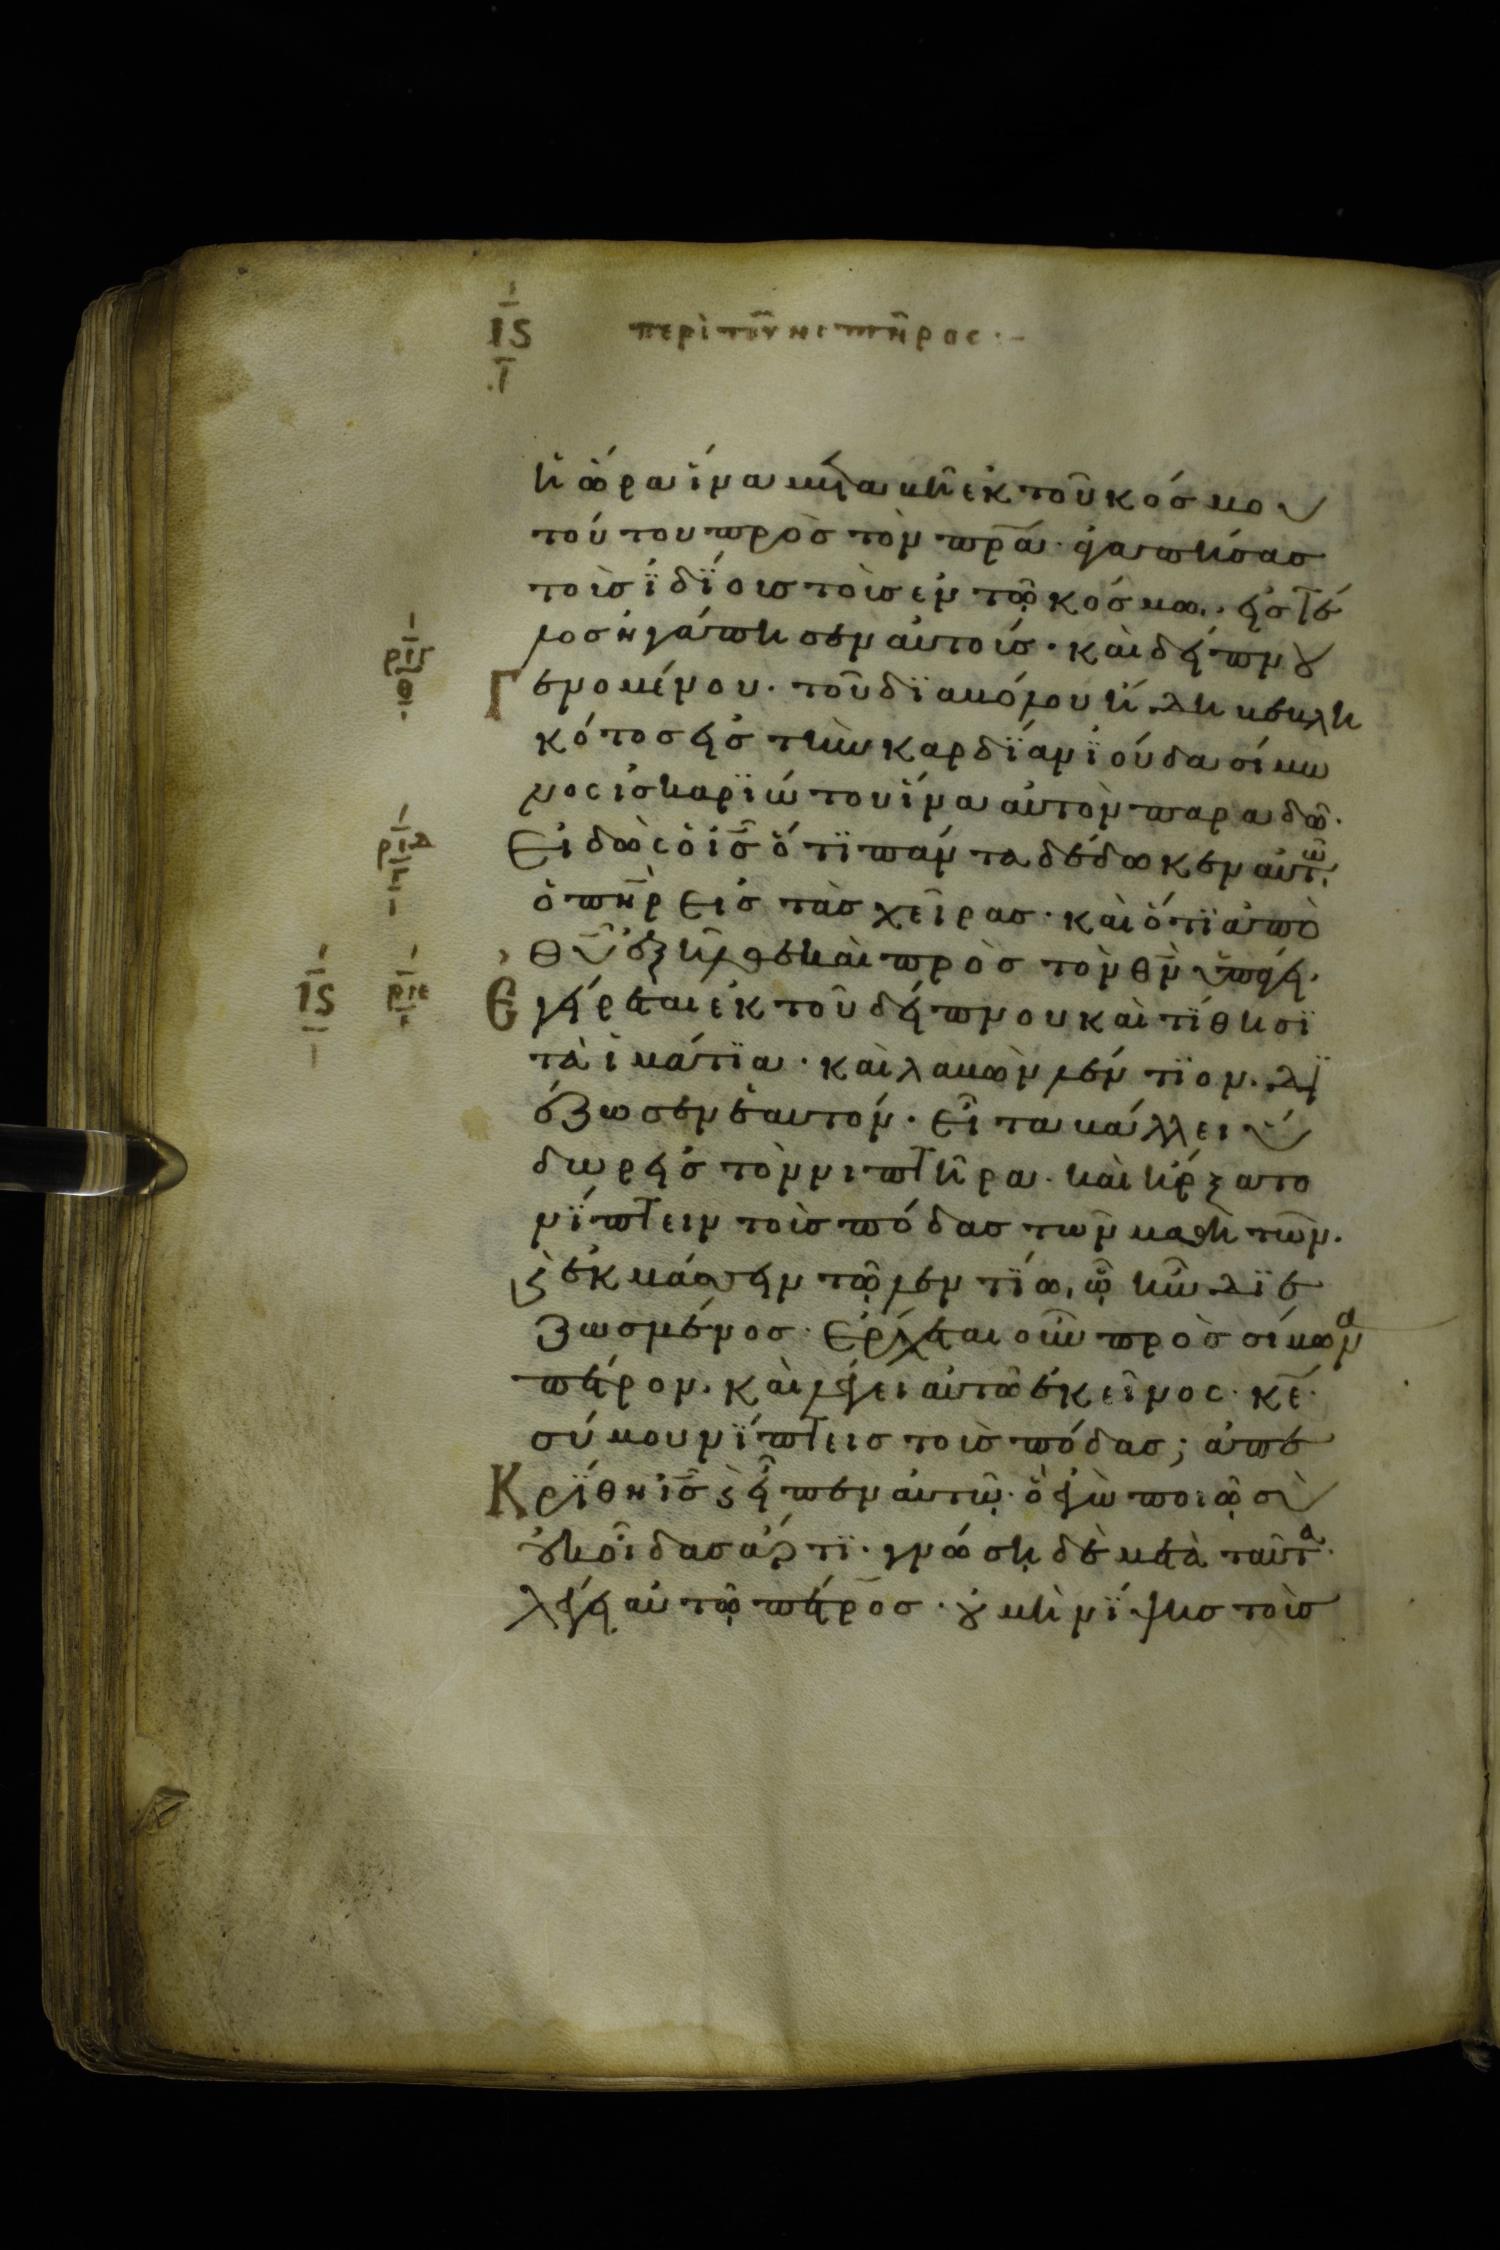 ις περὶ τοῦ νιπτῆρος·
ἡ ὥρα ἵνα μεταβῆ ἐκ τοῦ κόσμου
τούτου πρὸς τὸν πρ̅α· ἀγαπήσας
τοὺς ἰδίους τοὺς ἐν τῷ κόσμω· εἰς τέ
λος ἠγάπησεν αὐτούς· καὶ δείπνου
ριγ θ Γ ενομένου· τοῦ διαβόλου ἤδη βεβλη
κότος εἰς τὴν καρδίαν ϊούδα σίμω
νος ἰσκαριώτου ἵνα αὐτὸν παραδῶ·
ριδ γ Εἰδὼς ὁ ισ̅ ὅτι πάντα δέδωκεν αὐτῶ
ὁ πη̅ρ εἰς τὰς χεῖρας· καὶ ὅτι ἀπὸ
θυ̅ ἐξῆλθε καὶ πρὸς τὸν θν̅ ὑπάγει·
ις ριε ι Ἐγείρεται ἐκ τοῦ δείπνου καὶ τίθησι
τὰ ἱμάτια· καὶ λαβὼν λέντιον· δι
έζωσεν ἑαυτόν· εἶτα βάλλει ὕ
δωρ εἰς τὸν νιπτῆρα· καὶ ἤρξατο
νίπτειν τοὺς πόδας τῶν μαθητῶν·
ϗ ἐκμάσσειν τῷ λεντίω, ᾧ ἦν διε
ζωσμένος· ἔρχεται οὖν πρὸς σίμωνα
πέτρον· καὶ λέγει αὐτῶ ἐκεῖνος· κε̅·
σύ μου νίπτεις τοὺς πόδας; ἀπε
Κρίθη ισ̅ ϗ εἶπεν αὐτῷ· ὃ ἐγὼ ποιῶ σὺ
οὐκ οἶδας ἄρτι· γνώσῃ δὲ μετὰ ταῦτα·
λέγει αὐτῷ πέτρος· οὐ μὴ νίψῃς τοὺς